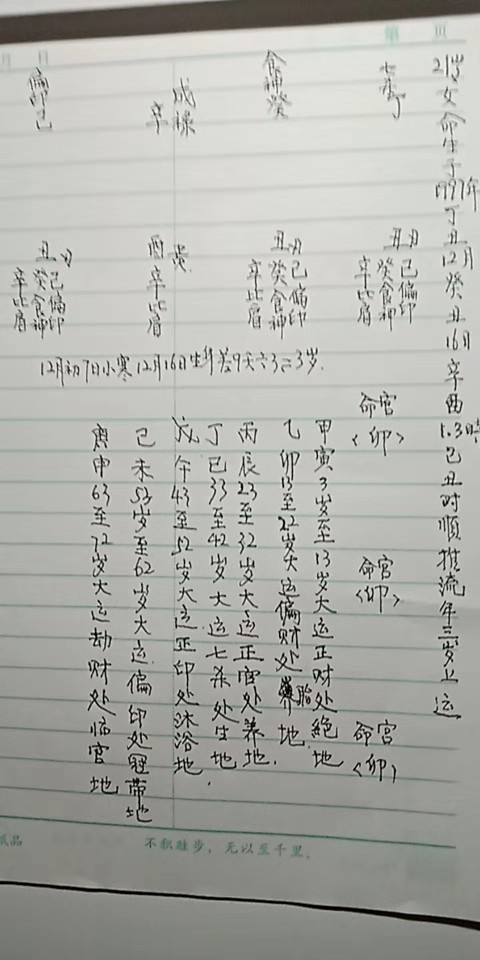 21岁女命生于1997年丁丑12月癸丑16日辛酉1.3時己丑时顺推流年三岁上运
七杀丁
食神癸
成禄
辛
偏印己
丑月
己偏印
癸食神
辛比肩
丑月
己偏印
癸食神
辛比肩
酉
辛比肩
丑月
己偏印
癸食神
辛比肩
12月初7日小寒12月16日生年差9天六3=3岁.
命宫
<卯>
命宫
<卯>
命宫
<卯>
甲寅3岁至13岁大运正财处絕地
乙卯13至22岁大运偏财处胎地
丙辰23至32岁大运正官处养地
丁巳33至42岁大运七杀处生地.
戊午43至52岁大运正印处沐浴地
己未53岁至62岁大运偏印处冠带地
庚申63至72岁大运劫财处临官地
第 页
月 日
纸品
不积跬步，无以至千里。